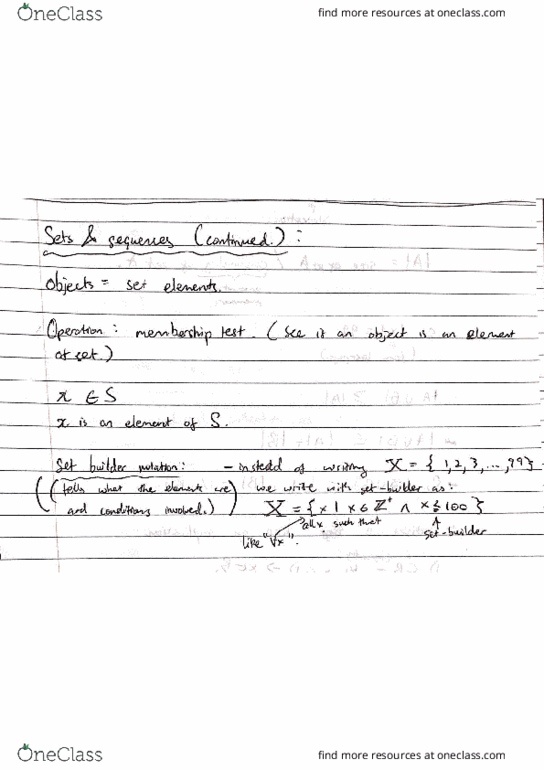 OneClass
find more resources at oneclass.com
Sets & sequences (continued.) :
objects = set elements.
Operation : membership test. (See if an object is an element
of set.)
x ∈ S
x is an element of S.
Set builder notation: - instead of writing X = { 1, 2, 3, ..., 99}
((tells what the elements are) we write with set-builder as:
and conditions involved.) X = {x | x ∈ Z⁺ ∧ x ≤ 100}
all x such that
like "∀x". set-builder
OneClass
find more resources at oneclass.com